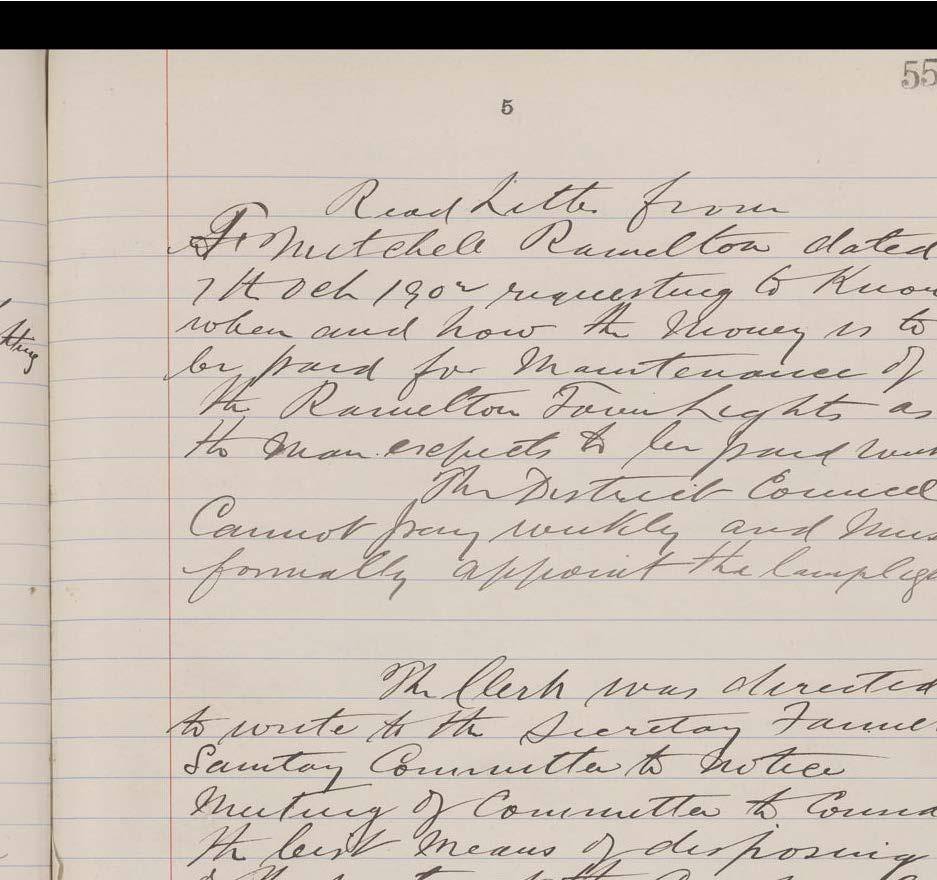 55
5
Read Letter from
Mitchell Ramelton dated
7th Oct 1902 requesting to Know
when and how the Money is to
be paid for Maintenance of
the Ramelton Town Lights as
the Man expects to be paid
The District Council
Cannot pay weekly and Mus
formally appoint the lamplig
The Clerk was directed
to write to the Secretary
Sanitary Committee to notice
Meeting of Committee to
the best Means of disposing